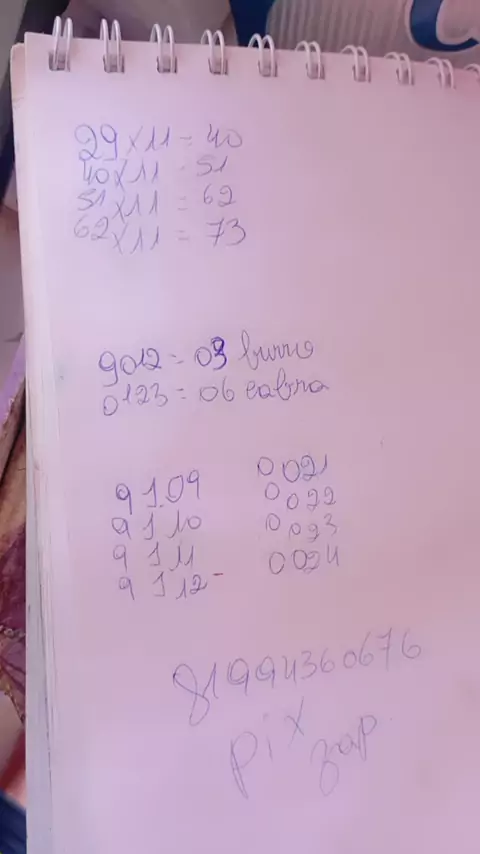 29 x 11 = 40
40 x 11 - 51
51 x 11 = 62
62 x 11 = 73
9012 = 03 burro
0123 = 06 cabra
9109 0021
9110 0022
9111 0023
9112 - 0024
81994360676
pix zap